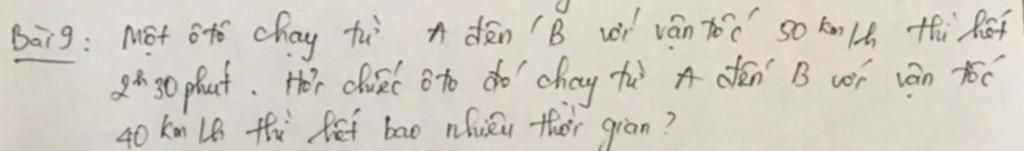 Bài 9: Một ôtô chạy từ A đến B với vận tốc 50 km/h thì hết
2h 30 phút. Hỏi chiếc ôto đó chạy từ A đến B với vận tốc
40 km/h thì hết bao nhiêu thời gian?